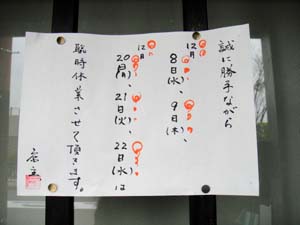 誠に勝手ながら
12月8日(水)、9日(木)、
12月20日(月)、21日(火)、22日(水)は
臨時休業させて頂きます。
店主